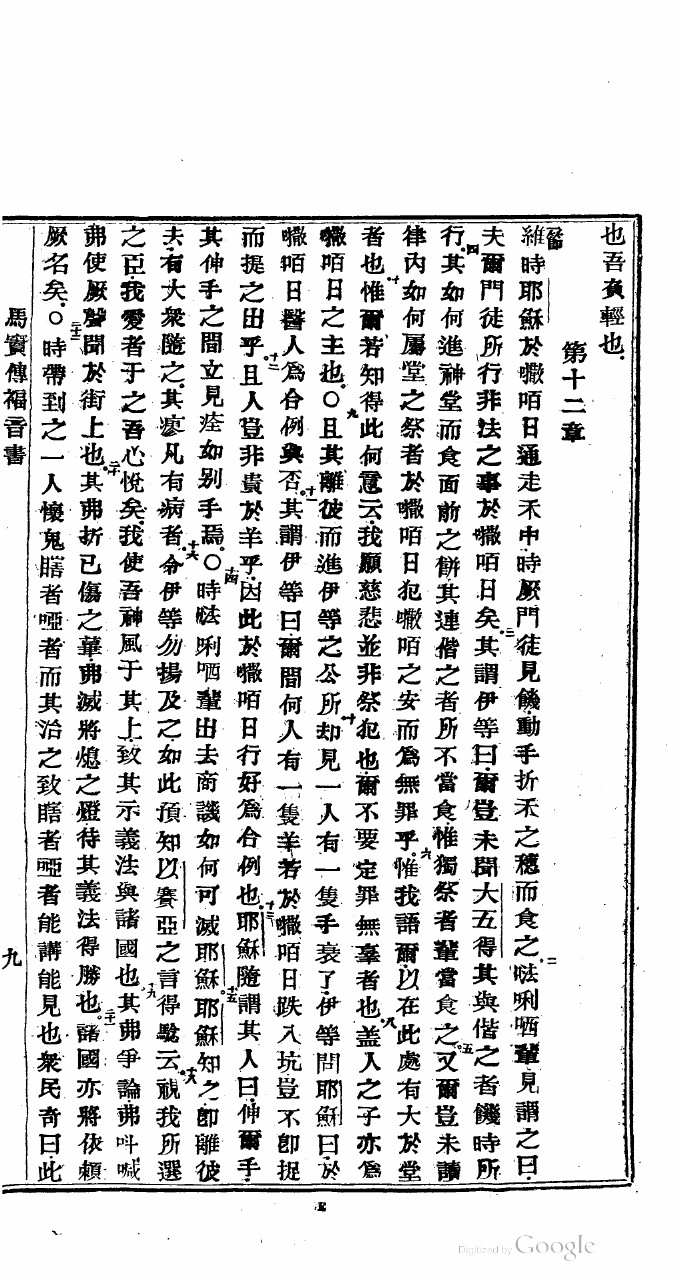 也吾負輕也。
第十二章
維時耶穌於𡂼咟日通走禾中時厥門徒見饑動手折禾之穗而食之。二㗙唎哂輩見謂之曰。
夫爾門徒所行非法之事於𡂼咟日矣。三其謂伊等曰。爾豈未聞大五得其與偕之者饑時所
行。四其如何進神堂而食面前之餅其連偕之者所不當食惟獨祭者輩當食之。五又爾豈未讀
律內如何屬堂之祭者於𡂼咟日犯𡂼咟之安而為無罪乎。六惟我語爾以在此處有大於堂
者也。七惟爾若知得此何意云。我願慈悲並非祭犯也爾不要定罪無辜者也。八盖人之子亦為
𡂼咟日之主也。〇九且其離彼而進伊等之公所。十却見一人有一隻手衰了。伊等問耶穌曰。於
𡂼咟日醫人為合例與否。十一其謂伊等曰爾間何人有一隻羊若於𡂼咟日跌入坑豈不卽捉
而提之出乎。十二且人豈非貴於羊乎。因此於𡂼咟日行好為合例也。十三耶穌隨謂其人曰。伸爾手。
其伸手之間立見痊如别手焉。〇十四時㗙唎哂輩出去商議如何可滅耶穌。十五耶穌知之卽離彼
去。有大衆隨之。其瘳凡有病者。十六令伊等勿揚及之。十七如此預知以賽亞之言得騐云。十八視我所選
之臣。我愛者于之吾心悅矣。我使吾神風于其上。致其示義法與諸國也。十九其弗爭論弗呌喊
弗使厥聲聞於街上也。二十其弗折已傷之葦弗滅將熄之燈待其義法得勝也。二十一諸國亦將依賴
厥名矣。〇二十二時帶到之一人懷鬼瞎者啞者而其治之致瞎者啞者能講能見也。衆民奇曰。此
馬竇傳福音書
九
E
Digitized by Google